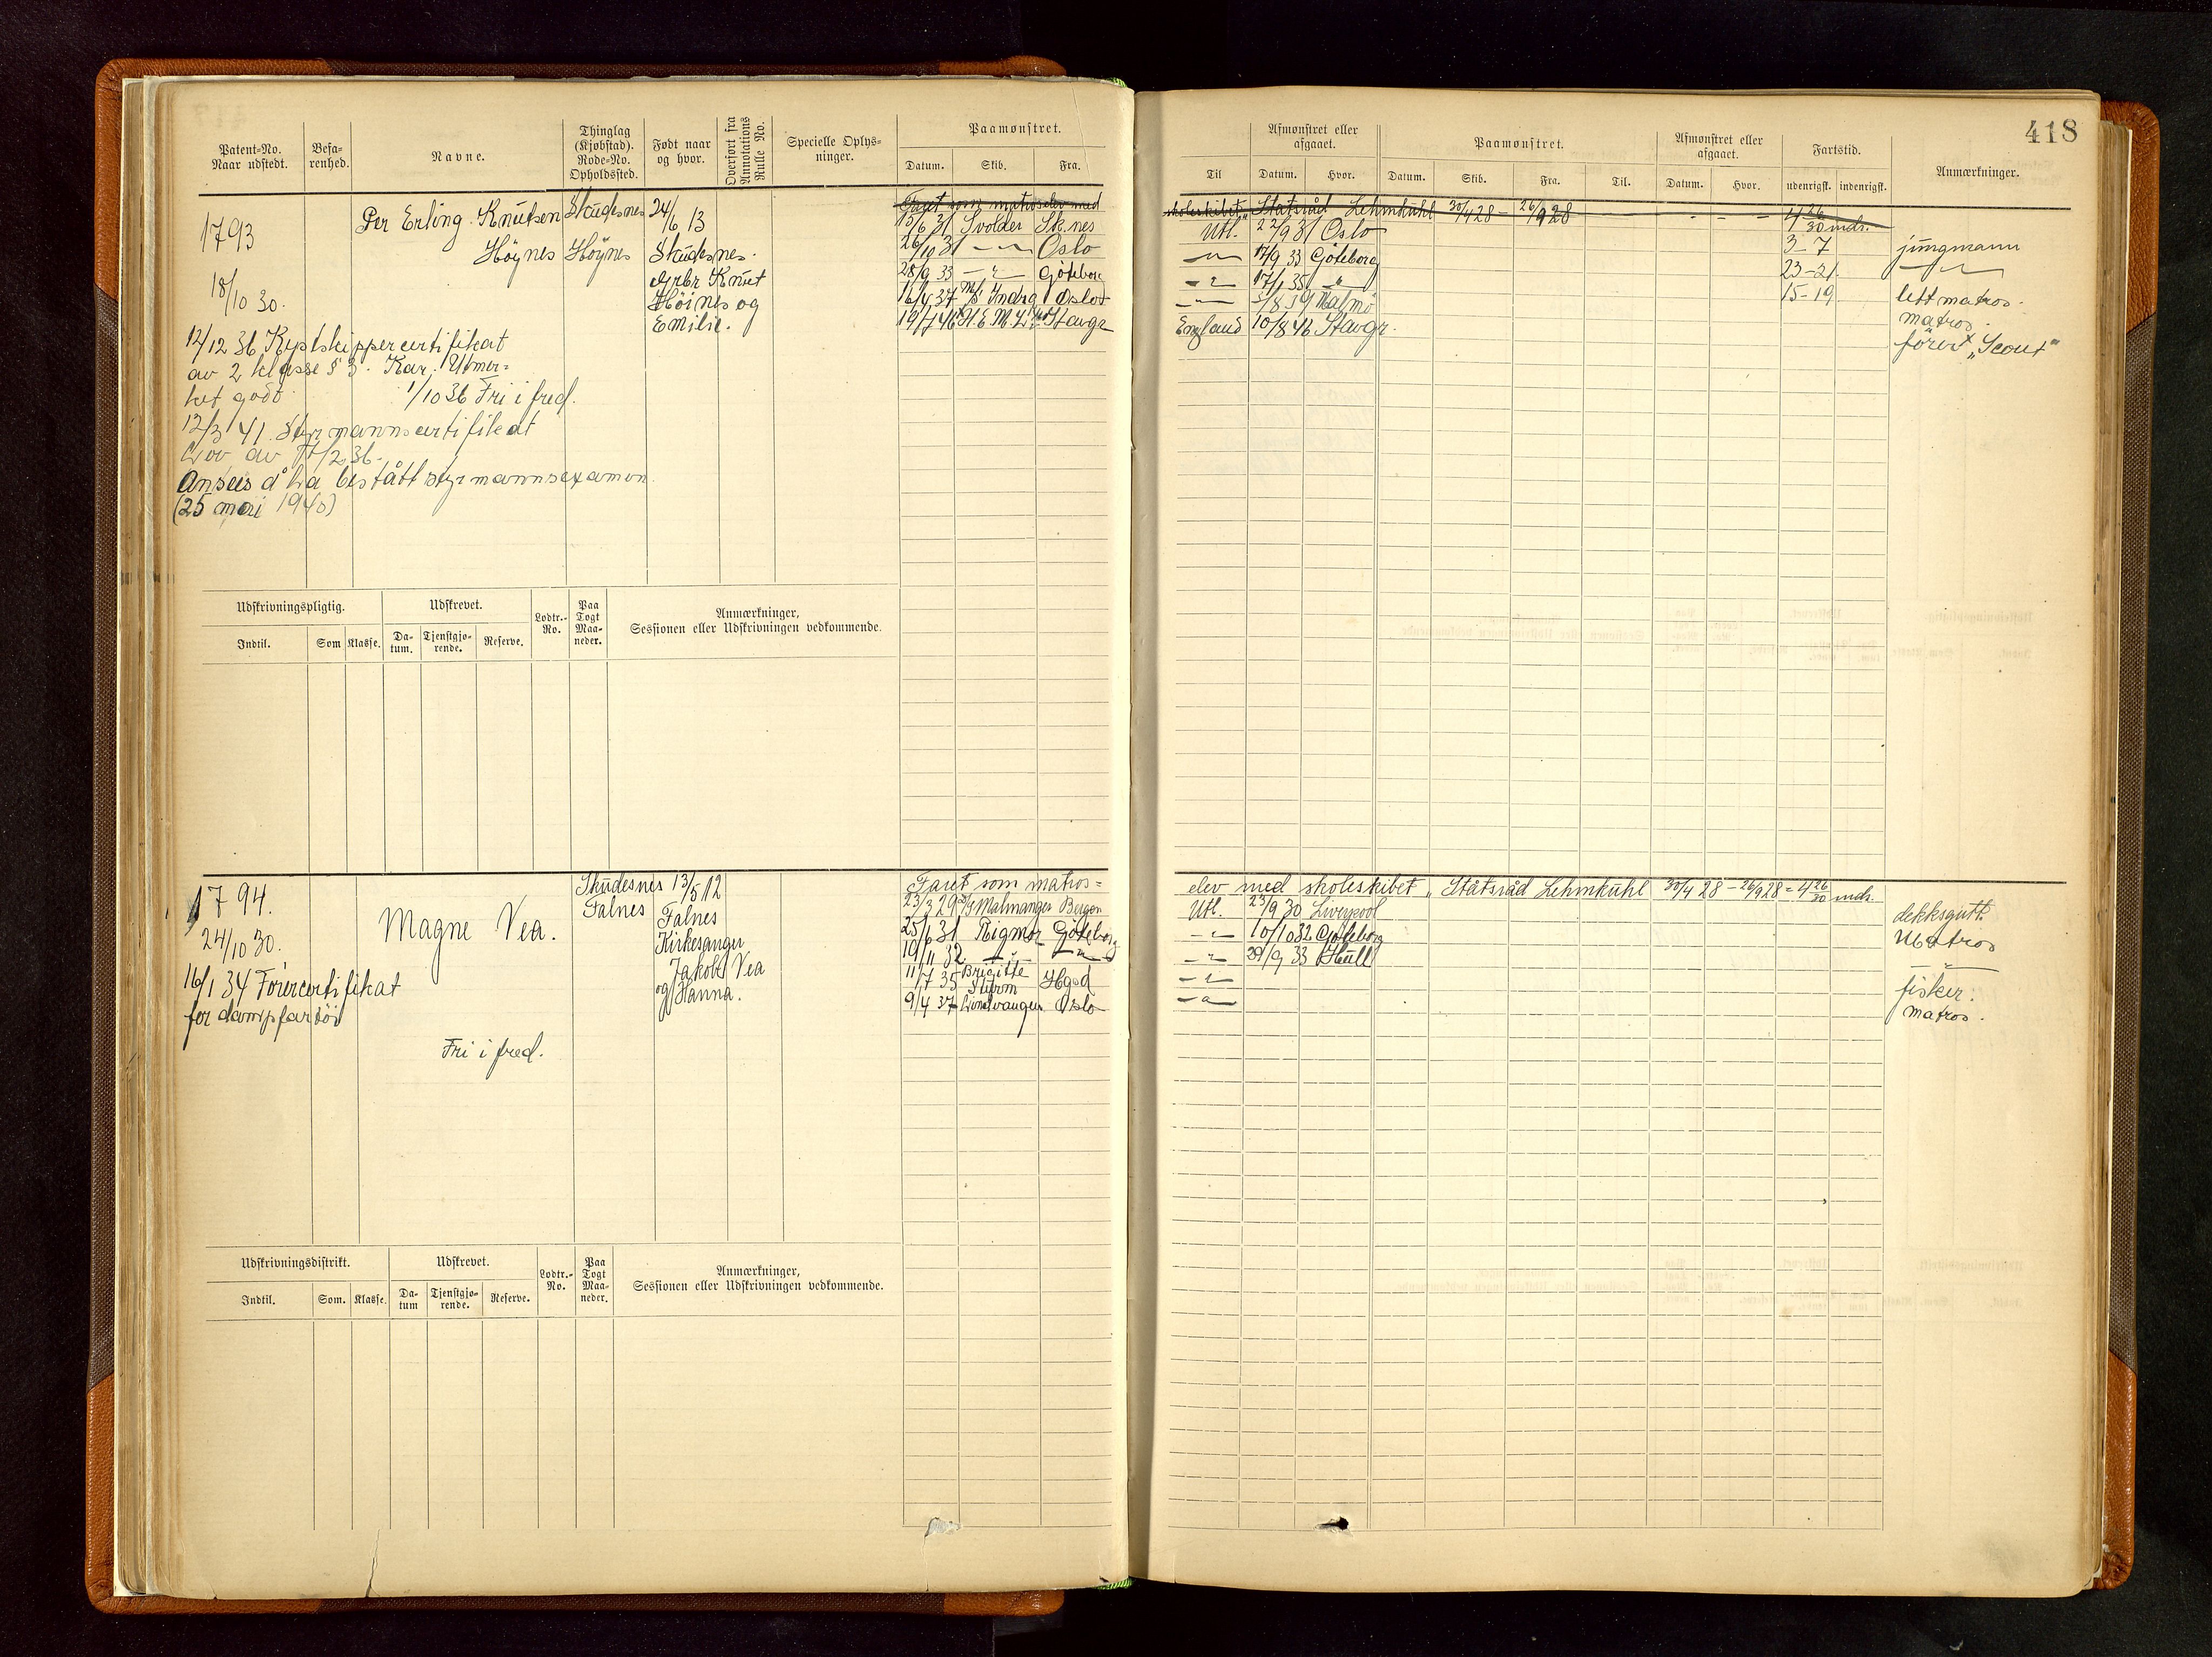 418
Patent-No. Naar udstedt.
Besa-renhed.
Navne.
Thinglag (Kjøbstad). Rode-No. Opholdssted.
Født naar og hvor.
Overført fra Annotations Rulle No.
Specielle Oplys-ninger.
Paamønstret.
Datum. Skib. Fra.
Til
Afmønstret eller afgaaet.
Datum. Hvor.
Paamønstret.
Datum. Skib. Fra. Til.
Afmønstret eller afgaaet.
Datum. Hvor.
Fartstid.
udenrigsk. indenrigsk.
Anmærkninger.
1793
18/10 30.
Per Erling Knutsen
Höynes
Skudesnes
Höynes
24/6 13
Skudesnes.
Grbr Knut
Höines og
Emilie.
12/12 36 Kystskippercertifikat
av 2 klasse § 3. Kar. Utmer-
ket godt. 1/10 36 Fri i fred.
12/3 41. Styrmannscertifikat
Lov av
Ansees å ha bestått styrmannsexamen
(25 mai 1940)
Faret som matroselev med skoleskibet "Statsråd Lehmkuhl 30/4 28 - 26/9 28 4 26/30 mdr.
13/6 31 Svolder Sk.nes Utl. 22/9 31 Oslo 3-7 jungmann
26/10 31 -"- Oslo -"- 17/9 33 Göteborg 23-21 -"-
28/9 33 -"- Göteborg -"- 17/1 35 -"- 15-19 lettmatros.
16/4 37 M/S Indra Oslo -"- 5/8 39 Malmö matros.
19/7 46 Stavgr England 10/8 46 Stavgr. förer "Scout"
Udskrivningspligtig.
Indtil. Som Klasse.
Udskrevet.
Da-tum. Tjenstgjø-rende. Reserve.
Lodtr.-No.
Paa Togt Maa-neder.
Anmærkninger, Sessionen eller Udskrivningen vedkommende.
1794.
24/10 30.
Magne Vea.
Skudesnes
Falnes
13/5 12
Falnes
Kirkesanger
Jakob Vea
og Hanna.
16/1 34 Förercertifikat
for dampfartöi
Fri i fred.
Faret som matros=elev med skoleskibet "Statsråd Lehmkuhl 30/4 28 - 26/9 28 = 4 26/30 mdr.
23/3 29 Malmanger Bergen Utl. 23/9 30 Liverpool dekksgutt.
25/6 31 Rigmor Göteborg -"- 10/10 32 Göteborg Matros
19/11 32 -"- -"- -"- 29/9 33 Hull -"-
11/7 35 Brigitte Sturm Hgsd -"- fisker.
9/4 37 Lindvangen Oslo -"- matros.
Udskrivningsdistrikt.
Indtil. Som. Klasse.
Udskrevet.
Da-tum Tjenstgjø-rende. Reserve.
Lodtr.-No.
Paa Togt Maa-neder.
Anmærkninger, Sessionen eller Udskrivningen vedkommende.